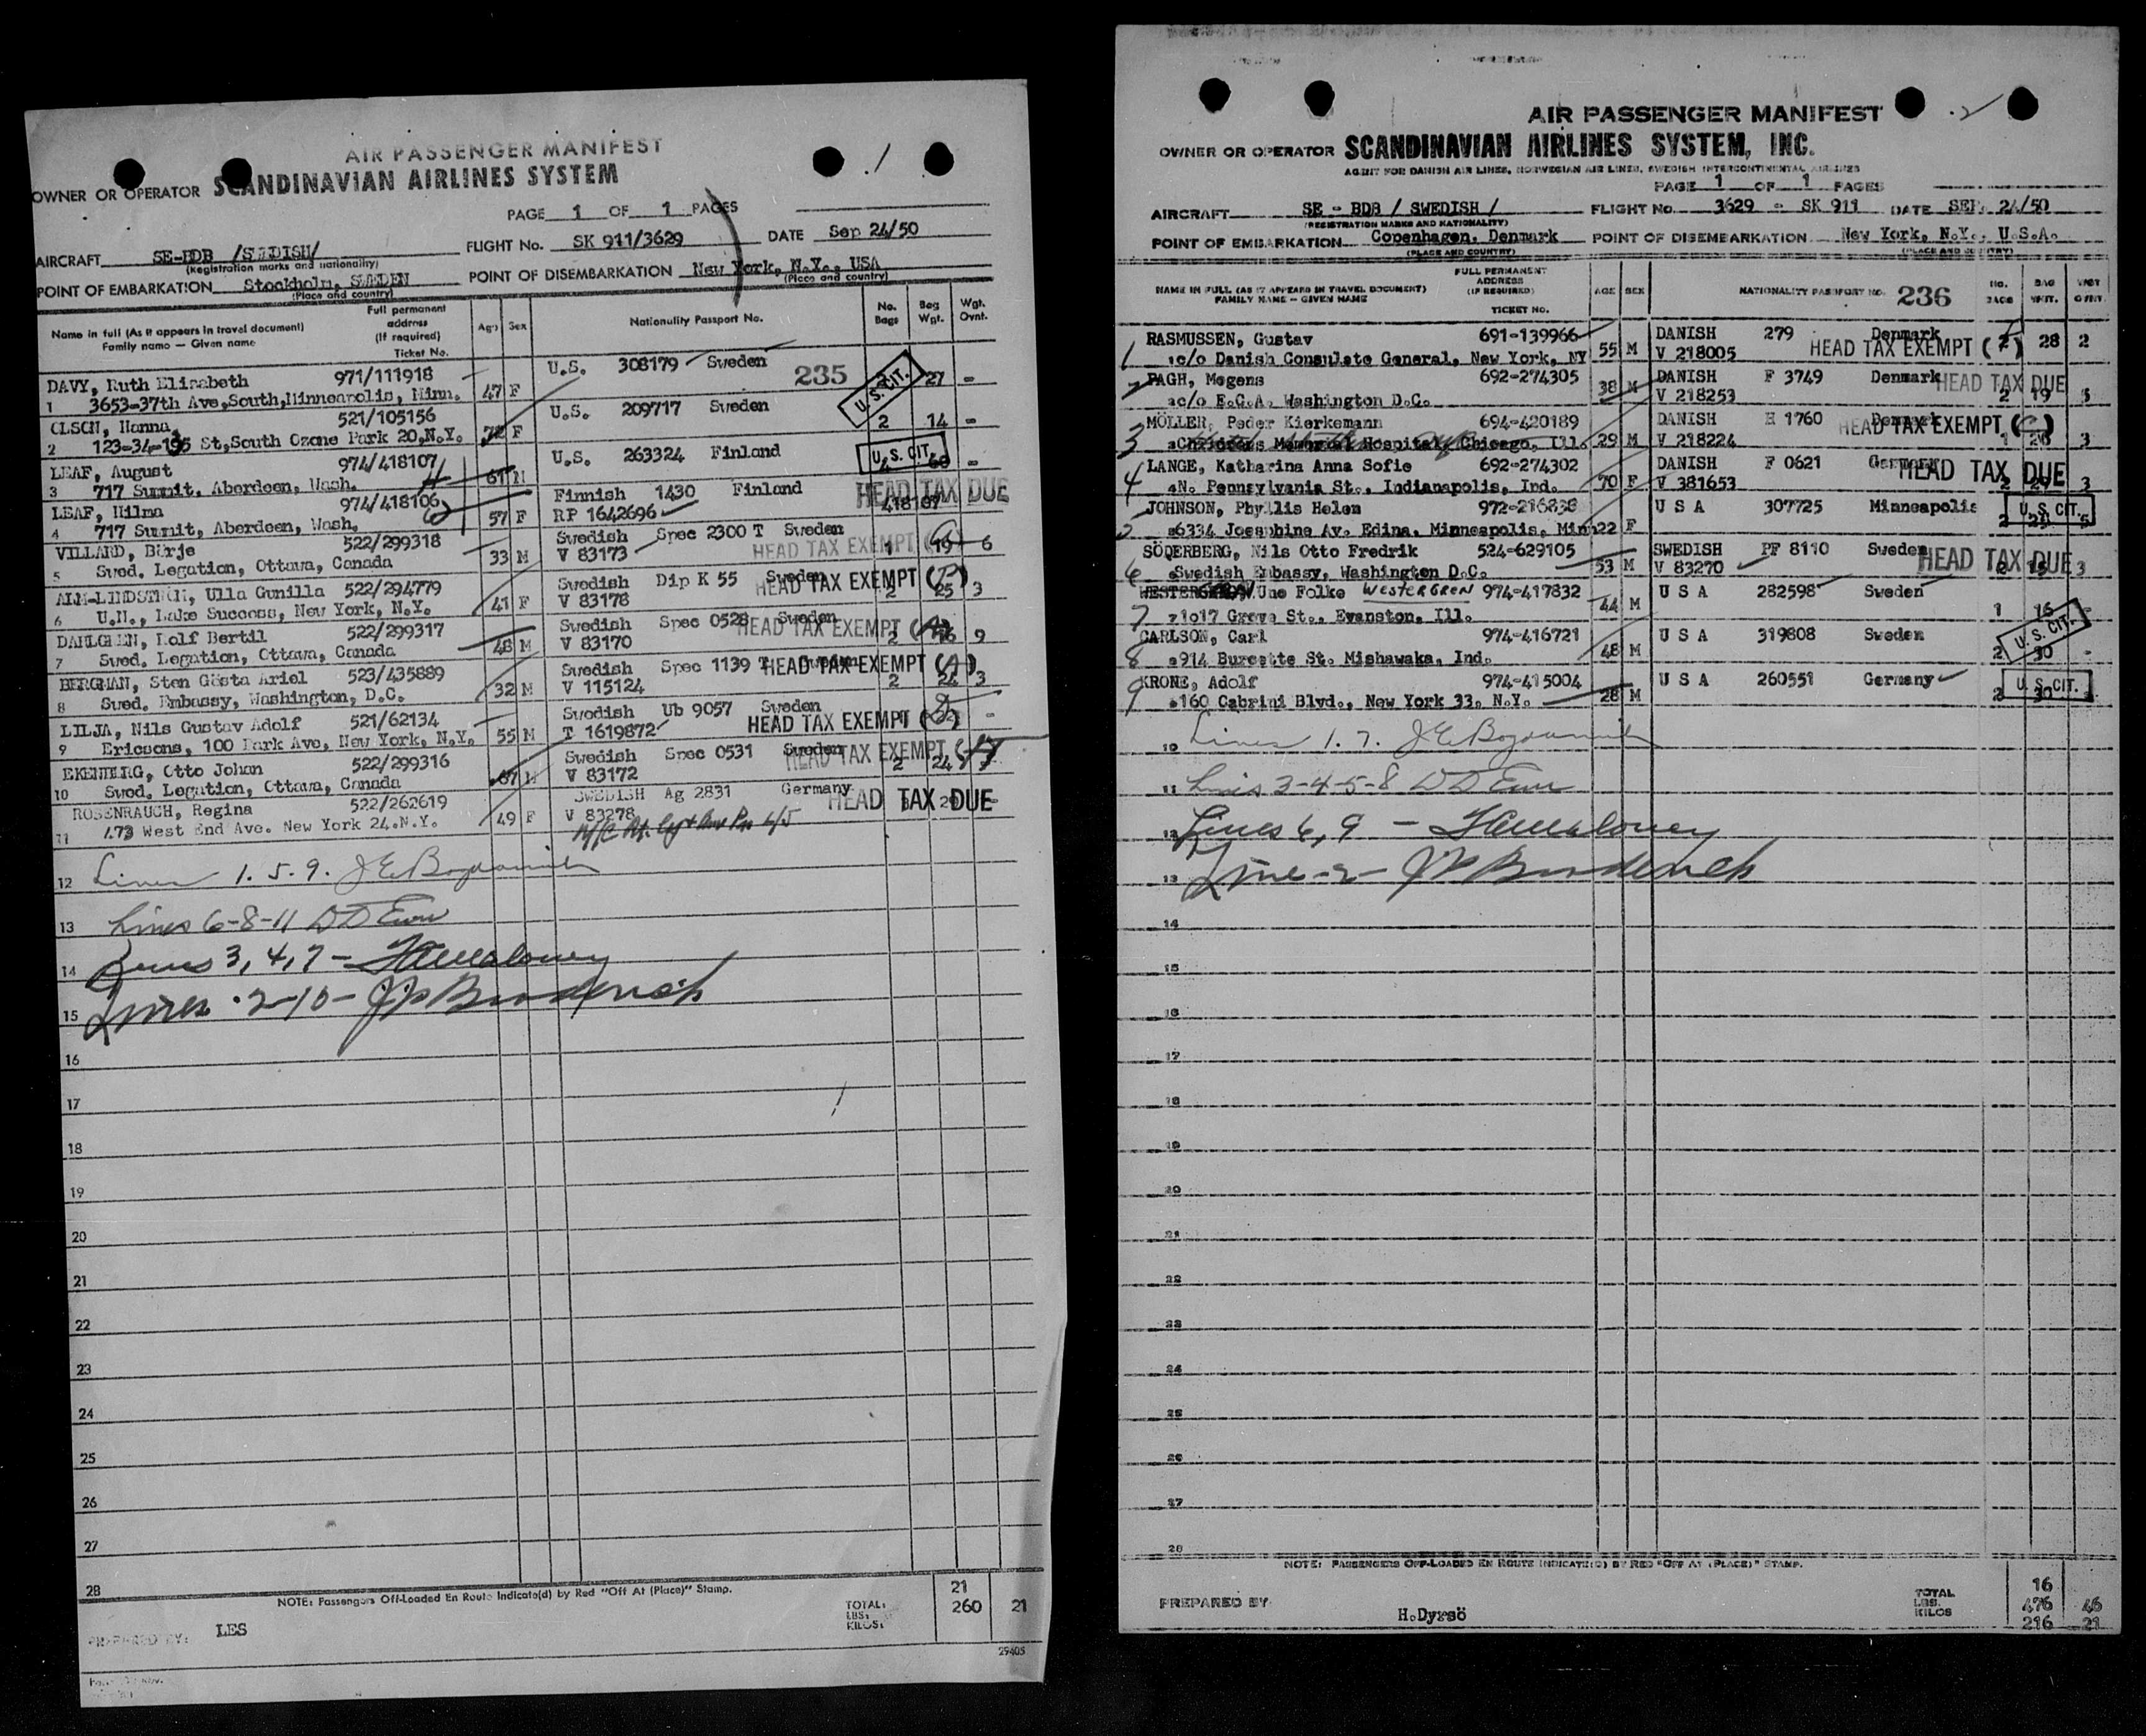 AIR PASSENGER MANIFEST
. 1
OWNER OR OPERATOR SCANDINAVIAN AIRLINES SYSTEM
PAGE 1 OF 1 PAGES
AIRCRAFT SE-BDB /SWEDISH/ FLIGHT No. SK 911/3629 DATE Sep 24/50
(Registration marks and nationality)
POINT OF EMBARKATION Stockholm, SWEDEN POINT OF DISEMBARKATION New York, N.Y., USA
(Place and country) (Place and country)
Name in full (As it appears in travel document) Family name — Given name Full permanent address (If required) Ticket No. Age Sex Nationality Passport No. No. Bags Bag Wgt. Wgt. Ovnt.
235
DAVY, Ruth Elizabeth 971/111918 47 F U.S. 308179 Sweden 27 -
1 3653-37th Ave,South,Minneapolis, Minn. U.S. CIT.
OLSON, Hanna 521/105156 F U.S. 209717 Sweden 2 14 -
2 123-34-195 St,South Ozone Park 20,N.Y.
LEAF, August 974/418107 61 M U.S. 263324 Finland U.S. CIT. 60 -
3 717 Summit, Aberdeen, Wash.
LEAF, Hilma 974/418106 57 F Finnish 1430 Finland HEAD TAX DUE
4 717 Summit, Aberdeen, Wash. RP 1642696 418107
VILLARD, Börje 522/299318 33 M Swedish Spec 2300 T Sweden
5 Swed. Legation, Ottawa, Canada V 83173 HEAD TAX EXEMPT 1 19 6
ALM-LINDSTRÖM, Ulla Gunilla 522/294779 41 F Swedish Dip K 55 Sweden
6 U.N., Lake Success, New York, N.Y. V 83178 HEAD TAX EXEMPT 2 25 3
DAHLGREN, Rolf Bertil 522/299317 48 M Swedish Spec 0528 Sweden
7 Swed. Legation, Ottawa, Canada V 83170 HEAD TAX EXEMPT (A) 2 9
BERGMAN, Sten Gösta Ariel 523/435889 32 M Swedish Spec 1139 T
8 Swed. Embassy, Washington, D.C. V 115124 HEAD TAX EXEMPT (A) 2 24 3
LILJA, Nils Gustav Adolf 521/62134 55 M Swedish Ub 9057 Sweden
9 Ericsons, 100 Park Ave, New York, N.Y. T 1619872 HEAD TAX EXEMPT -
EKENBERG, Otto Johan 522/299316 67 M Swedish Spec 0531 Sweden
10 Swed. Legation, Ottawa, Canada V 83172 HEAD TAX EXEMPT 2 24
ROSENRAUCH, Regina 522/262619 49 F SWEDISH Ag 2831 Germany
11 473 West End Ave. New York 24.N.Y. V 83278 HEAD TAX DUE
12 Lines 1. 5. 9.
13 Lines 6-8-11
14 Lines 3, 4, 7 -
15 Lines 2-10 -
16
17
18
19
20
21
22
23
24
25
26
27
28
NOTE: Passengers Off-Loaded En Route Indicate(d) by Red "Off At (Place)" Stamp.
21
TOTAL: LBS: KILOS: 260 21
PREPARED BY: LES
29405
AIR PASSENGER MANIFEST
. 2
OWNER OR OPERATOR SCANDINAVIAN AIRLINES SYSTEM, INC.
AGENT FOR DANISH AIR LINES, NORWEGIAN AIR LINES, SWEDISH INTERCONTINENTAL AIRLINES
PAGE 1 OF 1 PAGES
AIRCRAFT SE - BDB / SWEDISH / FLIGHT No. 3629 - SK 911 DATE SEP. 24/50
(REGISTRATION MARKS AND NATIONALITY)
POINT OF EMBARKATION Copenhagen, Denmark POINT OF DISEMBARKATION New York, N.Y., U.S.A.
(PLACE AND COUNTRY) (PLACE AND COUNTRY)
NAME IN FULL (AS IT APPEARS IN TRAVEL DOCUMENT) FAMILY NAME — GIVEN NAME FULL PERMANENT ADDRESS (IF REQUIRED) TICKET NO. AGE SEX NATIONALITY PASSPORT NO. 236 NO. BAGS BAG WGT. WGT OVNT.
RASMUSSEN, Gustav 691-139966 55 M DANISH 279 Denmark 28 2
1 c/o Danish Consulate General, New York, NY V 218005 HEAD TAX EXEMPT
PAGH, Mogens 692-274305 38 M DANISH F 3749 Denmark HEAD TAX DUE
2 c/o E.C.A. Washington D.C. V 218253 2 19 5
MÖLLER, Peder Kierkemann 694-420189 DANISH H 1760 Denmark HEAD TAX EXEMPT
3 Childrens Memorial Hospital, Chicago, Ill. 29 M V 218224 1 20 3
LANGE, Katharina Anna Sofie 692-274302 DANISH F 0621 Germany HEAD TAX DUE
4 N. Pennsylvania St., Indianapolis, Ind. 70 F V 381653 3
JOHNSON, Phyllis Helen 972-216838 U S A 307725 Minneapolis U.S. CIT.
5 6334 Josephine Av. Edina, Minneapolis, Min 22 F 2
SÖDERBERG, Nils Otto Fredrik 524-629105 SWEDISH PF 8110 Sweden HEAD TAX DUE
6 Swedish Embassy, Washington D.C. 53 M V 83270 3
Une Folke WESTERGREN 974-417832 44 M U S A 282598 Sweden
7 1017 Grove St., Evanston, Ill. 1 16 -
CARLSON, Carl 974-416721 48 M U S A 319808 Sweden U.S. CIT.
8 914 Burdette St. Mishawaka, Ind. 2 30 -
KRONE, Adolf 974-415004 28 M U S A 260551 Germany U.S. CIT.
9 160 Cabrini Blvd., New York 33, N.Y. 2 30
10 Lines 1. 7.
11 Lines 3-4-5-8
12 Lines 6, 9 -
13 Line -2-
14
15
16
17
18
19
20
21
22
23
24
25
26
27
28
NOTE: PASSENGERS OFF-LOADED EN ROUTE INDICATE(D) BY RED "OFF AT (PLACE)" STAMP.
16
TOTAL LBS. KILOS 476 46
216 21
PREPARED BY H.Dyrsö